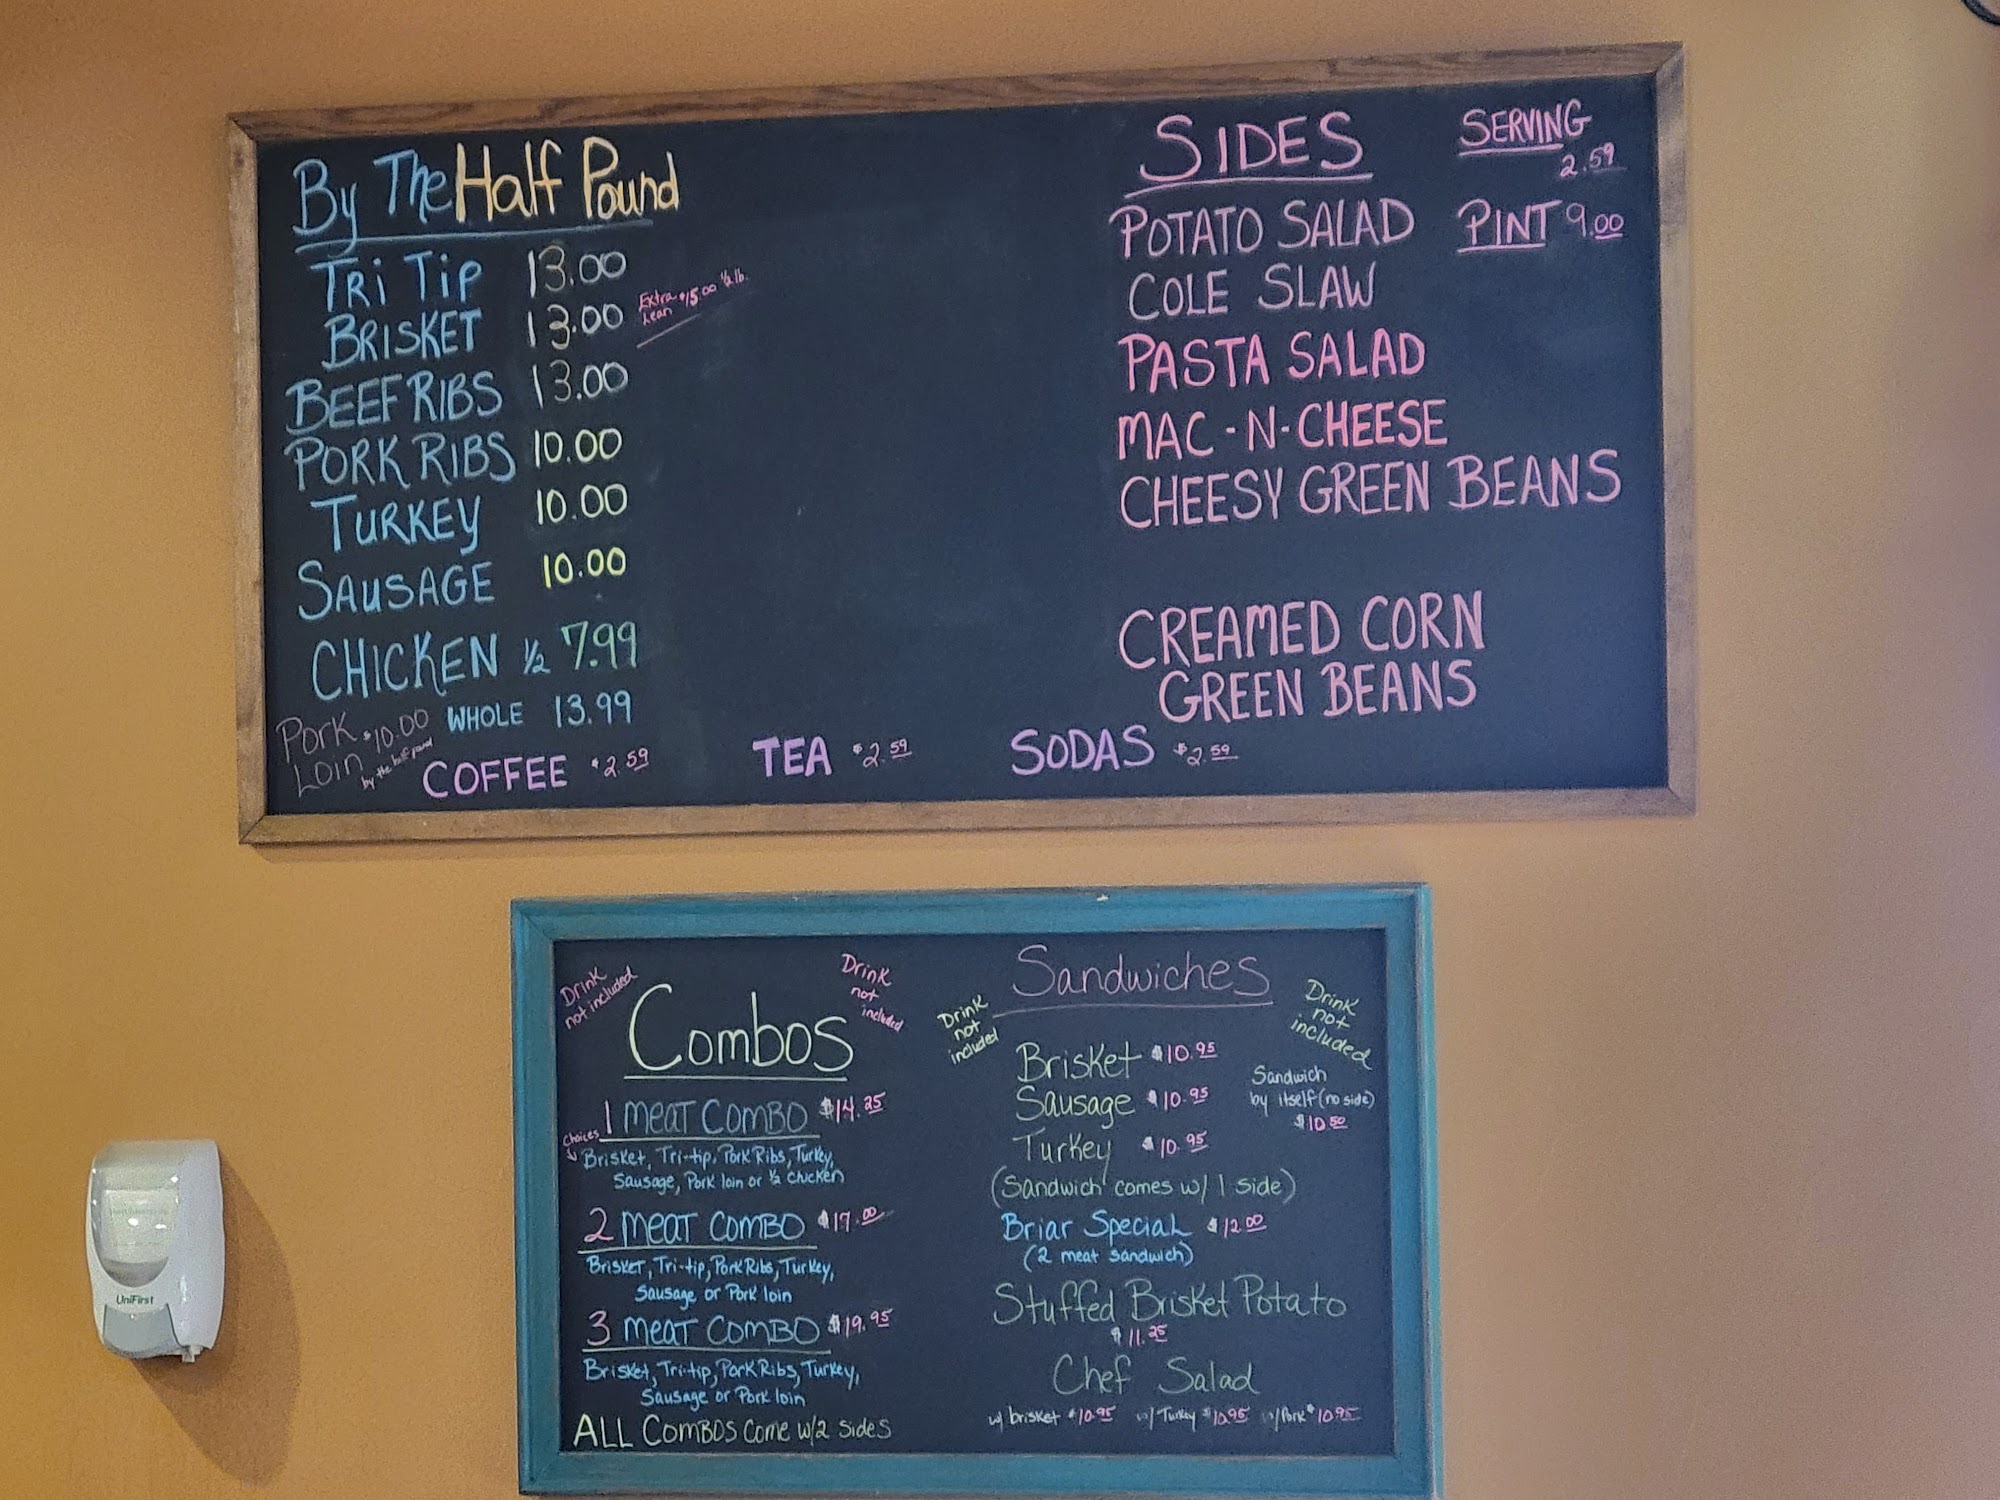 By The Half Pound
Tri Tip 13.00
Brisket 13.00 Extra Lean $15.00 ½ lb.
BEEF RIBS 13.00
PORK RIBS 10.00
TURKEY 10.00
SAUSAGE 10.00
CHICKEN ½ 7.99
WHOLE 13.99
Pork Loin $10.00 by the half pound
COFFEE $2.59
TEA $2.59
SODAS $2.59
SIDES
SERVING 2.59
POTATO SALAD
PINT 9.00
COLE SLAW
PASTA SALAD
MAC-N-CHEESE
CHEESY GREEN BEANS
CREAMED CORN
GREEN BEANS
Drink not included
Drink not included
Combos
1 MEAT COMBO $14.25
Choices
Brisket, Tri-tip, Pork Ribs, Turkey,
Sausage, Pork loin or ½ chicken
2 MEAT COMBO $17.00
Brisket, Tri-tip, Pork Ribs, Turkey,
Sausage or Pork loin
3 MEAT COMBO $19.95
Brisket, Tri-tip, Pork Ribs, Turkey,
Sausage or Pork loin
ALL COMBOS Come w/2 sides
Sandwiches
Drink not included
Drink not included
Brisket $10.95
Sausage $10.95
Turkey $10.95
Sandwich
by itself (no side)
$10.50
(Sandwich comes w/ 1 side)
Briar Special $12.00
(2 meat sandwich)
Stuffed Brisket Potato
$11.25
Chef Salad
w/ brisket $10.95 w/ Turkey $10.95 w/ Pork $10.95
UniFirst